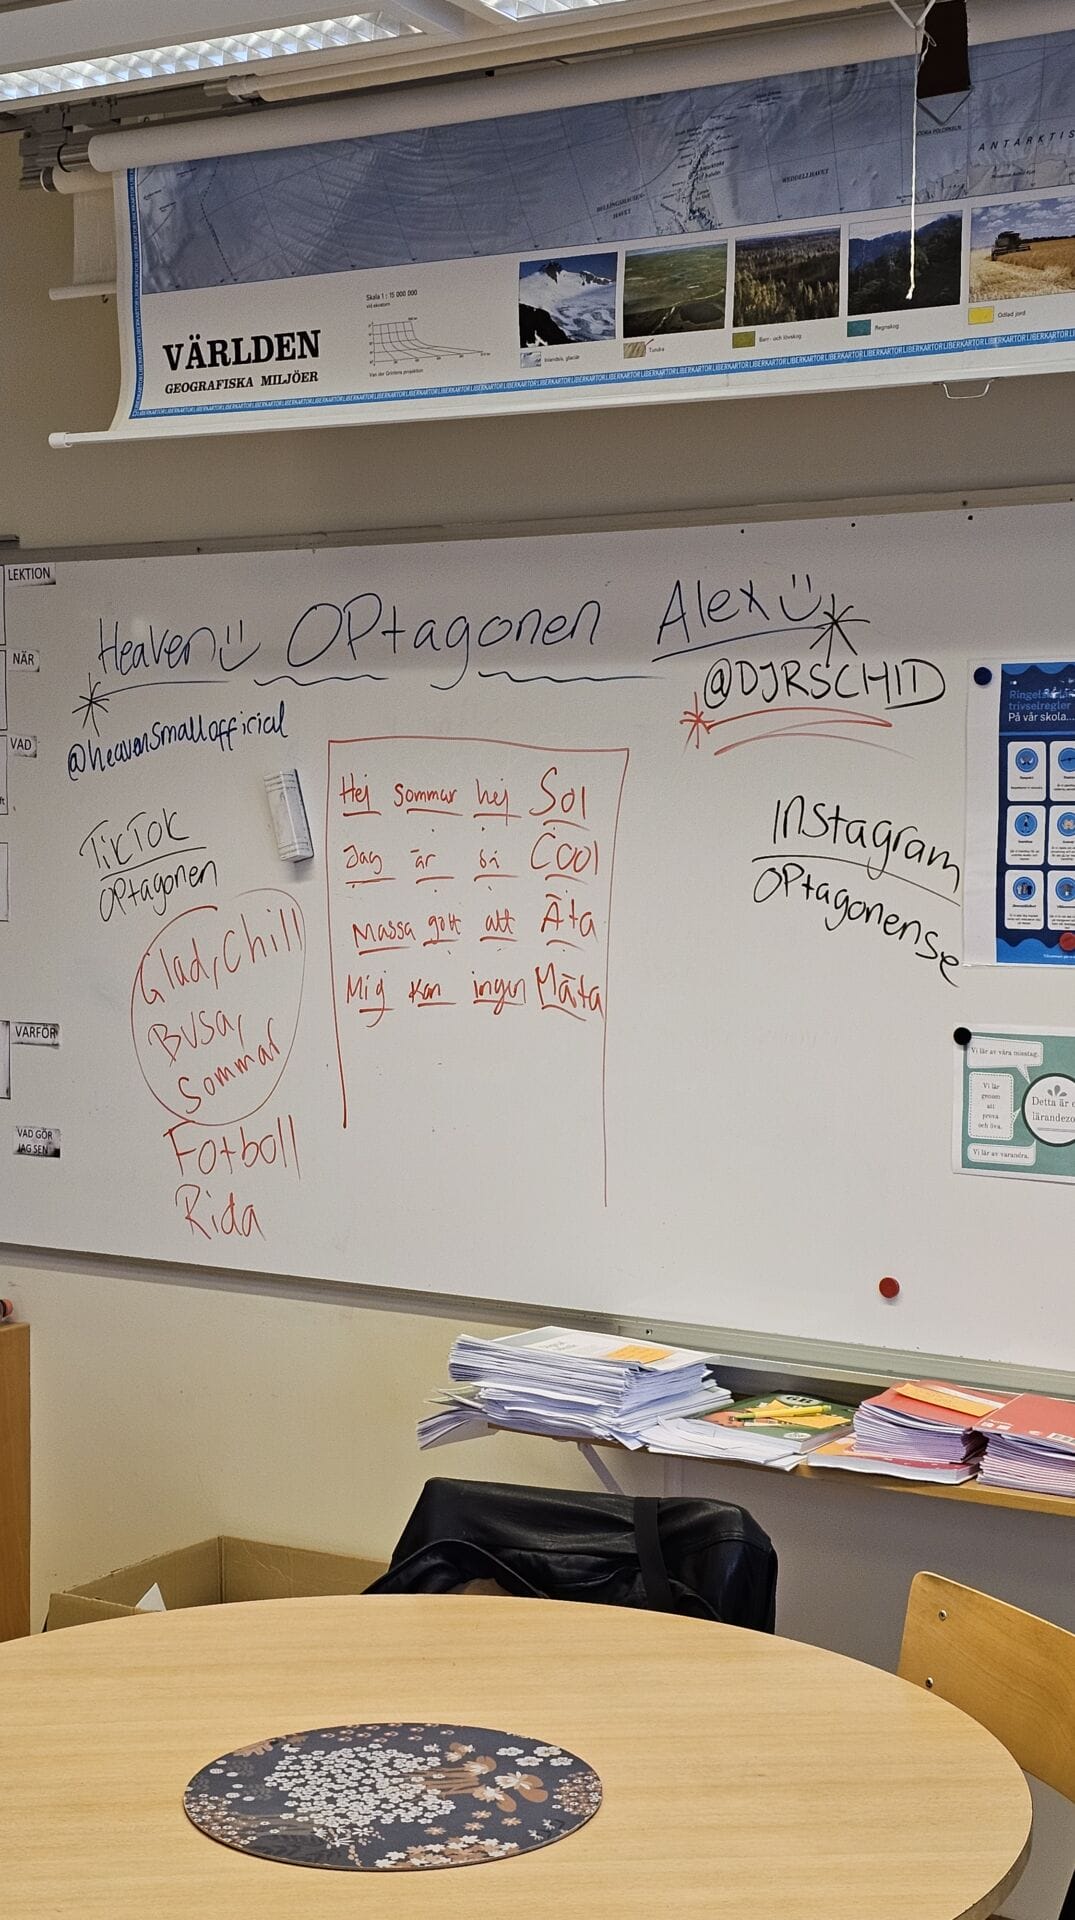 ANTARKTIS
WEDDELLHAVET
BELLINGSHAUSEN-
HAVET
Skala 1 : 15 000 000
vid ekvatorn
VÄRLDEN
GEOGRAFISKA MILJÖER
Van der Grintens projektion
Inlandsis, glaciär
Tundra
Barr- och lövskog
Regnskog
Odlad jord
LIBERKARTOR
LEKTION
NÄR
VAD
VARFÖR
VAD GÖR
JAG SEN
Heaven :) OPtagonen Alex :)
@heavensmallofficial
@DJRSCHID
TikTok
OPtagonen
Glad, Chill
Busa,
Sommar
Fotboll
Rida
Hej sommar hej Sol
Jag är så Cool
Massa gott att Äta
Mig kan ingen Mäta
Instagram
OPtagonense
trivselregler
På vår skola...
Vi lär av våra misstag.
Vi lär
genom
att
pröva
och öva.
Detta är e
lärandezo
Vi lär av varandra.